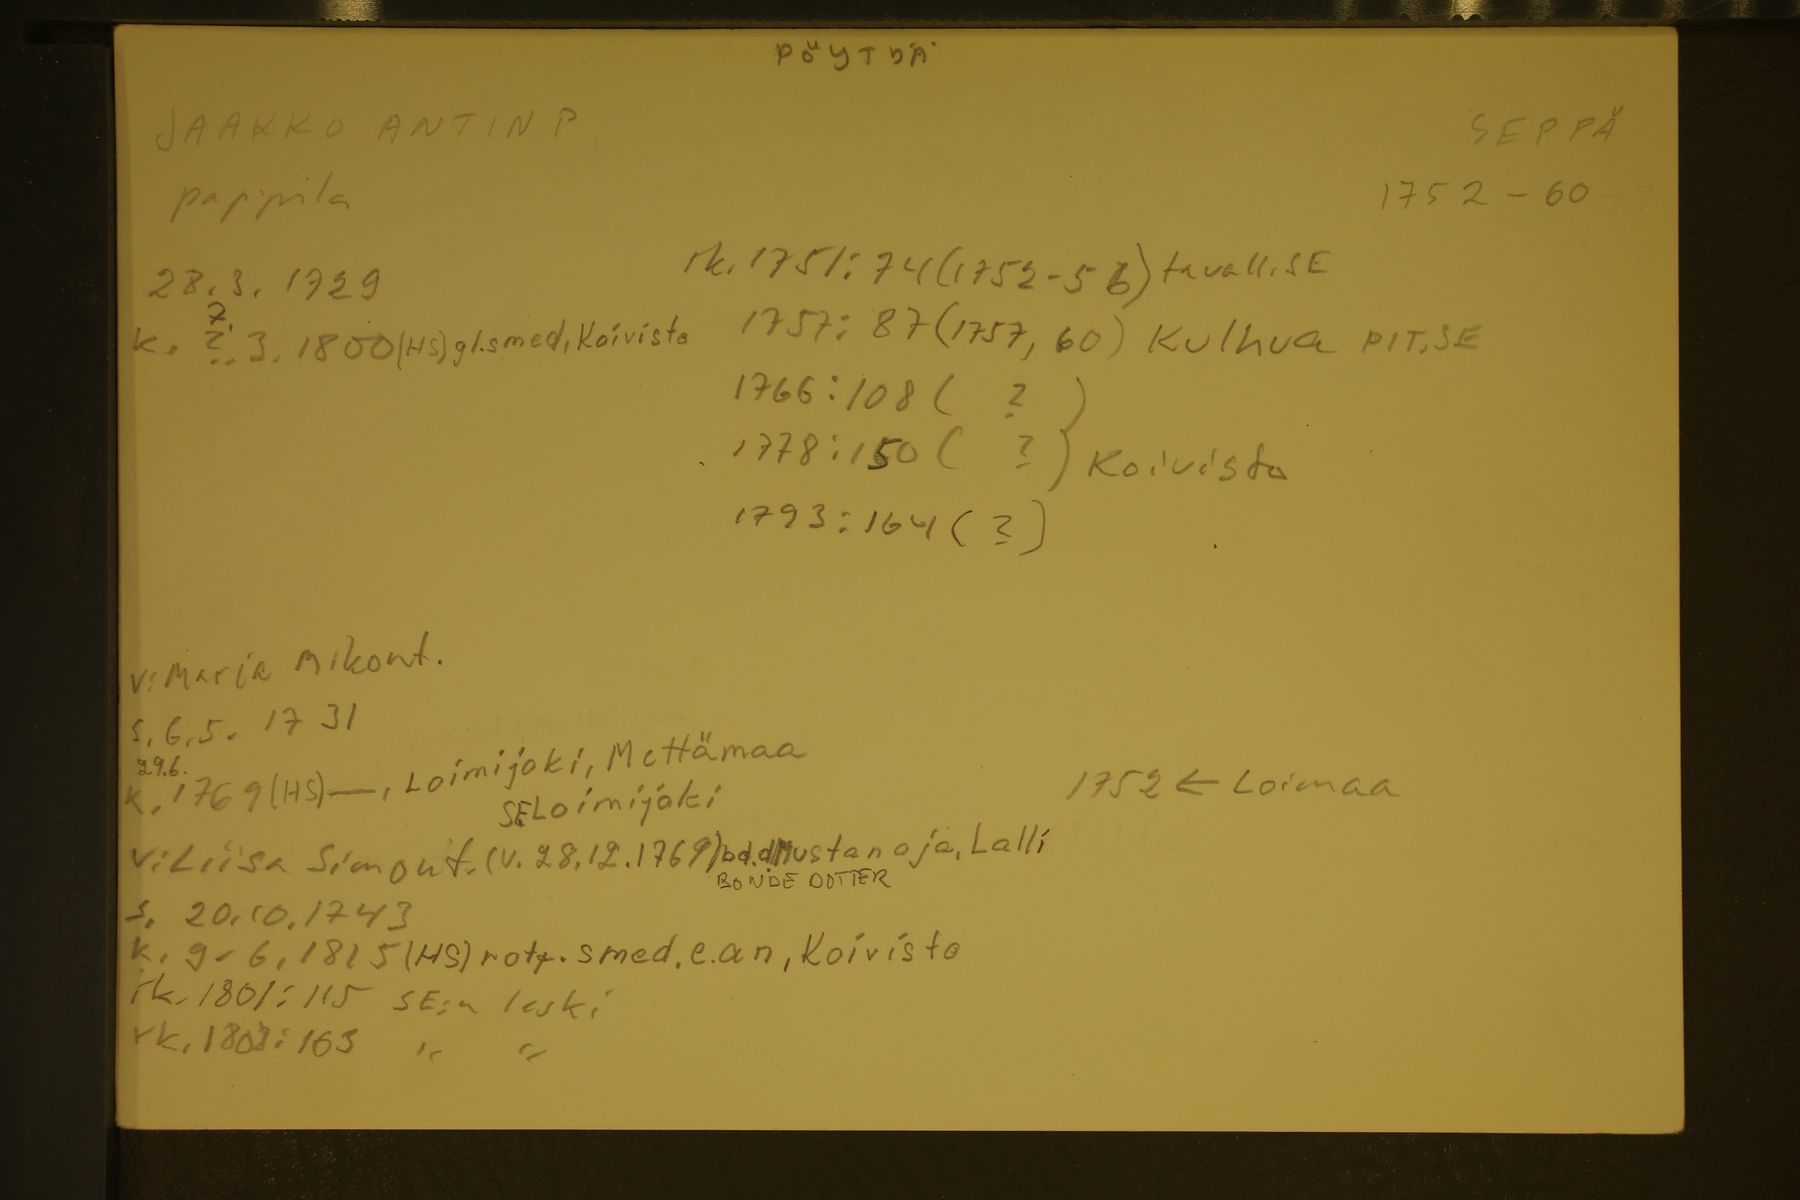 PÖYTYÄ
JAAKKO ANTINP. SEPPÄ
pappila 1752-60
28.3. 1729 rk. 1751: 74 (1752-56) tavall. SE
7.
k. ?. 3. 1800 (HS) gl. smed, Koivisto 1757: 87 (1757, 60) Kulhua PIT.SE
1766: 108 ( ? )
1778: 150 ( ? ) Koivisto
1793: 164 ( ? )
v: Marja Mikont.
s. 6.5. 1731
29.6.
k. 1769 (HS) —, Loimijoki, Mettämaa 1752 ← Loimaa
SE Loimijoki
v: Liisa Simont. (v. 28.12.1769) bd.d. Mustanoja, Lalli
BONDE DOTTER
s. 20.10.1743
k. 9-6.1815 (HS) rotf. smed. e.an, Koivisto
rk. 1801: 115 SE:n leski
rk. 1808: 163 " "